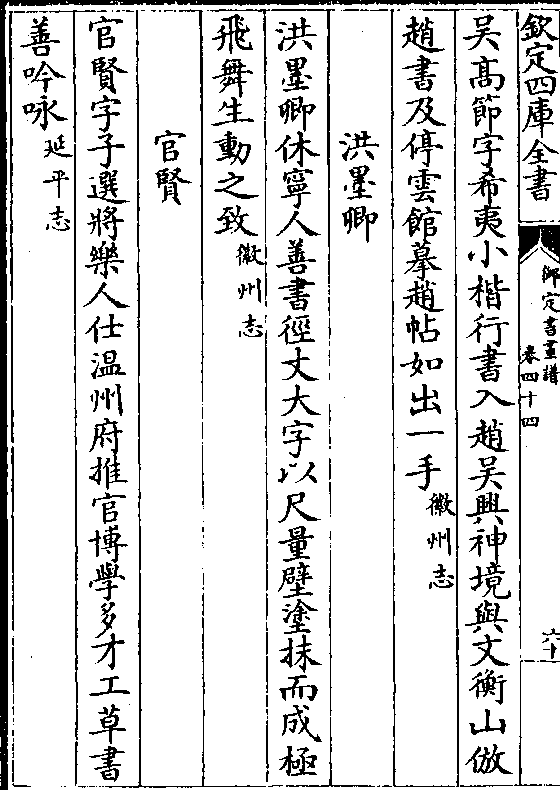 欽定四庫全書
御定書畫譜
卷四十四
六十
吴髙節字希夷小楷行書入趙吴興神境與文衡山倣
趙書及停雲館摹趙帖如出一手徽州志
洪墨卿
洪墨卿休寧人善書徑丈大字以尺量壁塗抹而成極
飛舞生動之致徽州志
官賢
官賢字子選將樂人仕温州府推官博學多才工草書
善吟咏延平志